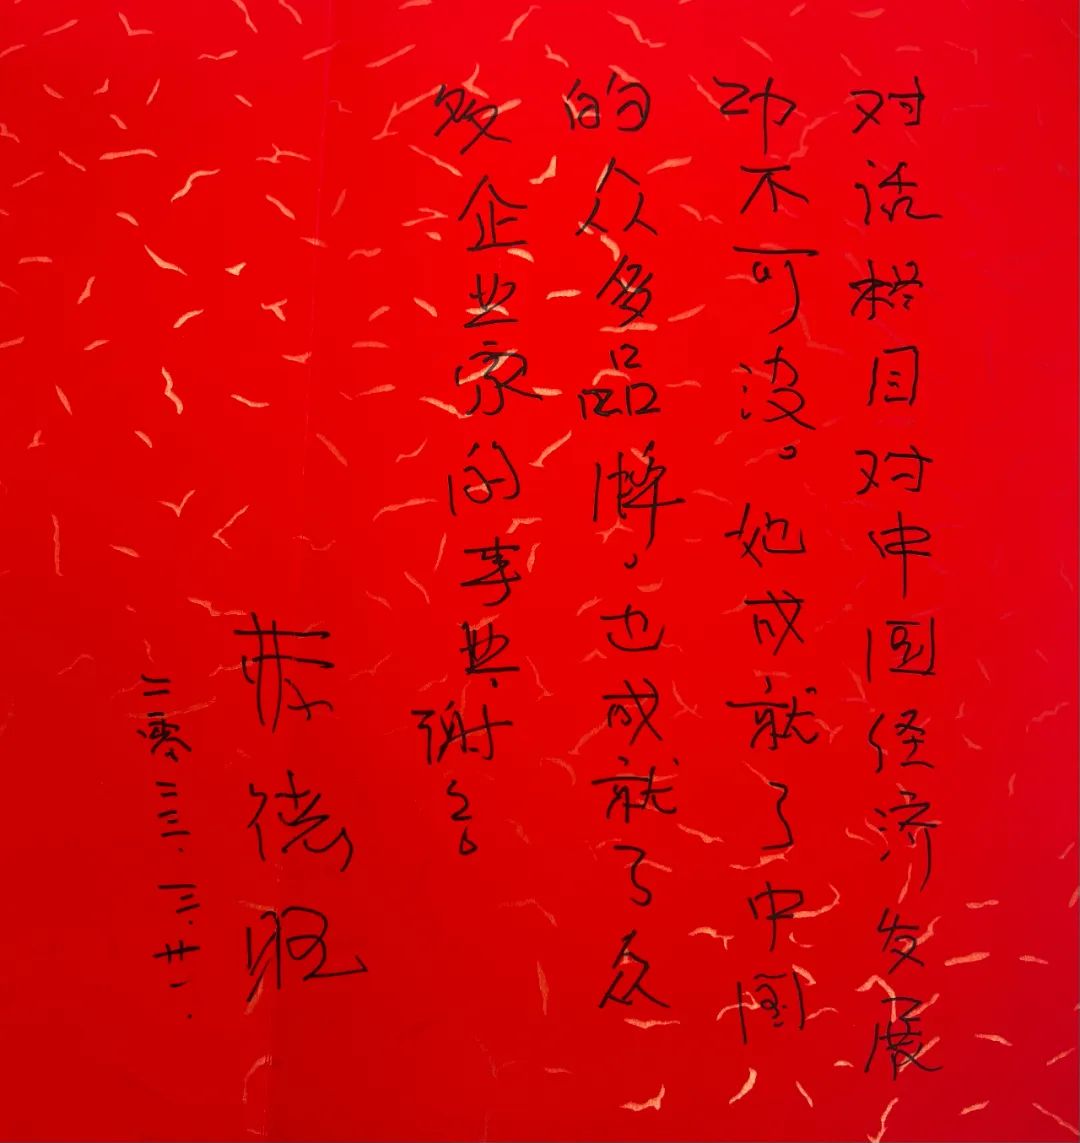 对话栏目对中国经济发展
功不可没。她成就了中国
的众多品牌，也成就了众
多企业家的事业，谢々。
曹德旺
二零二三.三.廿一.